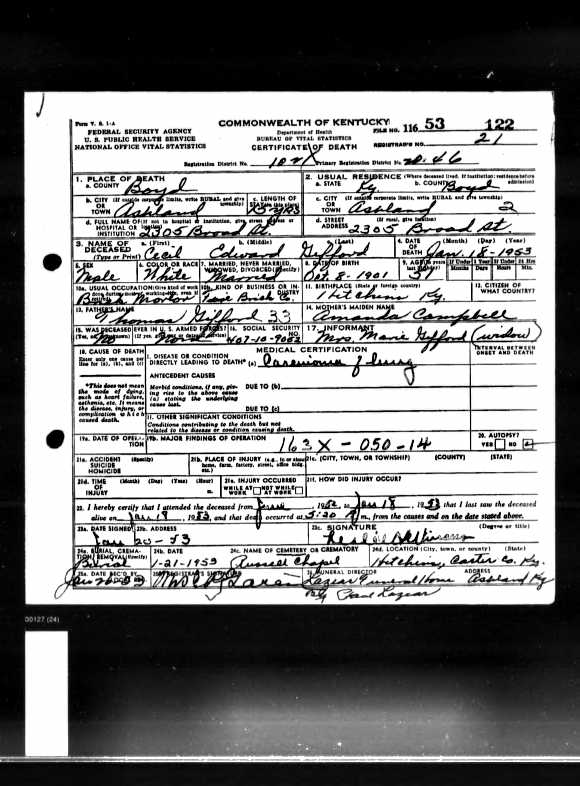 Form V. S. 1-A
FEDERAL SECURITY AGENCY
U. S. PUBLIC HEALTH SERVICE
NATIONAL OFFICE VITAL STATISTICS
COMMONWEALTH OF KENTUCKY
Department of Health
BUREAU OF VITAL STATISTICS
CERTIFICATE OF DEATH
FILE NO. 116 53 122
REGISTRAR'S NO. 21
Registration District No. Primary Registration District No.
1. PLACE OF DEATH
a. COUNTY Boyd
b. CITY (If outside corporate limits, write RURAL and give township) OR TOWN Ashland
c. LENGTH OF
d. FULL NAME OF (If not in hospital or institution, give street address or location) HOSPITAL OR INSTITUTION 2305 Broad St.
2. USUAL RESIDENCE (Where deceased lived. If institution: residence before admission)
a. STATE Ky b. COUNTY Boyd
c. CITY (If outside corporate limits, write RURAL and give township) OR TOWN Ashland 2
d. STREET ADDRESS (If rural, give location) 2305 Broad St.
3. NAME OF DECEASED (Type or Print)
a. (First) Cecil b. (Middle) Edward c. (Last) Gifford
4. DATE OF DEATH (Month) (Day) (Year) Jan. 18-1953
5. SEX Male
6. COLOR OR RACE White
7. MARRIED, NEVER MARRIED, WIDOWED, DIVORCED (Specify) Married
8. DATE OF BIRTH Oct. 8-1901
9. AGE (In years last birthday) 51 If Under 1 Year Months Days If Under 24 Hrs Hours Min.
10a. USUAL OCCUPATION (Give kind of work
10b. KIND OF BUSINESS OR INDUSTRY Brick Co.
11. BIRTHPLACE (State or foreign country) Hitchins Ky.
12. CITIZEN OF WHAT COUNTRY?
13. FATHER'S NAME Thomas Gifford 33
14. MOTHER'S MAIDEN NAME Amanda Campbell
15. WAS DECEASED EVER IN U. S. ARMED FORCES? No
16. SOCIAL SECURITY
17. INFORMANT Mrs. Marie Gifford (widow)
18. CAUSE OF DEATH
Enter only one cause per line for (a), (b), and (c)
*This does not mean the mode of dying, such as heart failure, asthenia, etc. It means the disease, injury, or complication which caused death.
MEDICAL CERTIFICATION
INTERVAL BETWEEN ONSET AND DEATH
I. DISEASE OR CONDITION DIRECTLY LEADING TO DEATH* (a) Carcinoma of lung
ANTECEDENT CAUSES
Morbid conditions, if any, giving rise to the above cause (a) stating the underlying cause last.
DUE TO (b)
DUE TO (c)
II. OTHER SIGNIFICANT CONDITIONS
Conditions contributing to the death but not related to the disease or condition causing death.
19a. DATE OF OPERATION
19b. MAJOR FINDINGS OF OPERATION
163X-050-14
20. AUTOPSY? YES NO
21a. ACCIDENT (Specify) SUICIDE HOMICIDE
21b. PLACE OF INJURY (e.g., in or about home, farm, factory, street, office bldg. etc.)
21c. (CITY, TOWN, OR TOWNSHIP) (COUNTY) (STATE)
21d. TIME (Month) (Day) (Year) (Hour) OF INJURY m.
21e. INJURY OCCURRED WHILE AT WORK NOT WHILE AT WORK
21f. HOW DID INJURY OCCUR?
22. I hereby certify that I attended the deceased from June, 1952 to Jan 18, 1953 that I last saw the deceased
alive on Jan 18, 1953, and that death occurred at 5:20 m., from the causes and on the date stated above.
23a. DATE SIGNED Jan 20-53
23b. ADDRESS
23c. SIGNATURE (Degree or title)
24a. BURIAL, CREMATION, REMOVAL (Specify) Burial
24b. DATE 1-21-1953
24c. NAME OF CEMETERY OR CREMATORY Russell Chapel
24d. LOCATION (City, town, or county) (State) Hitchins, Carter Co. Ky.
25a. DATE REC'D BY
25b. REGISTRAR'S SIGNATURE
FUNERAL DIRECTOR ADDRESS
Lazear Funeral Home Ashland Ky
By Paul Lazear
00127 (24)